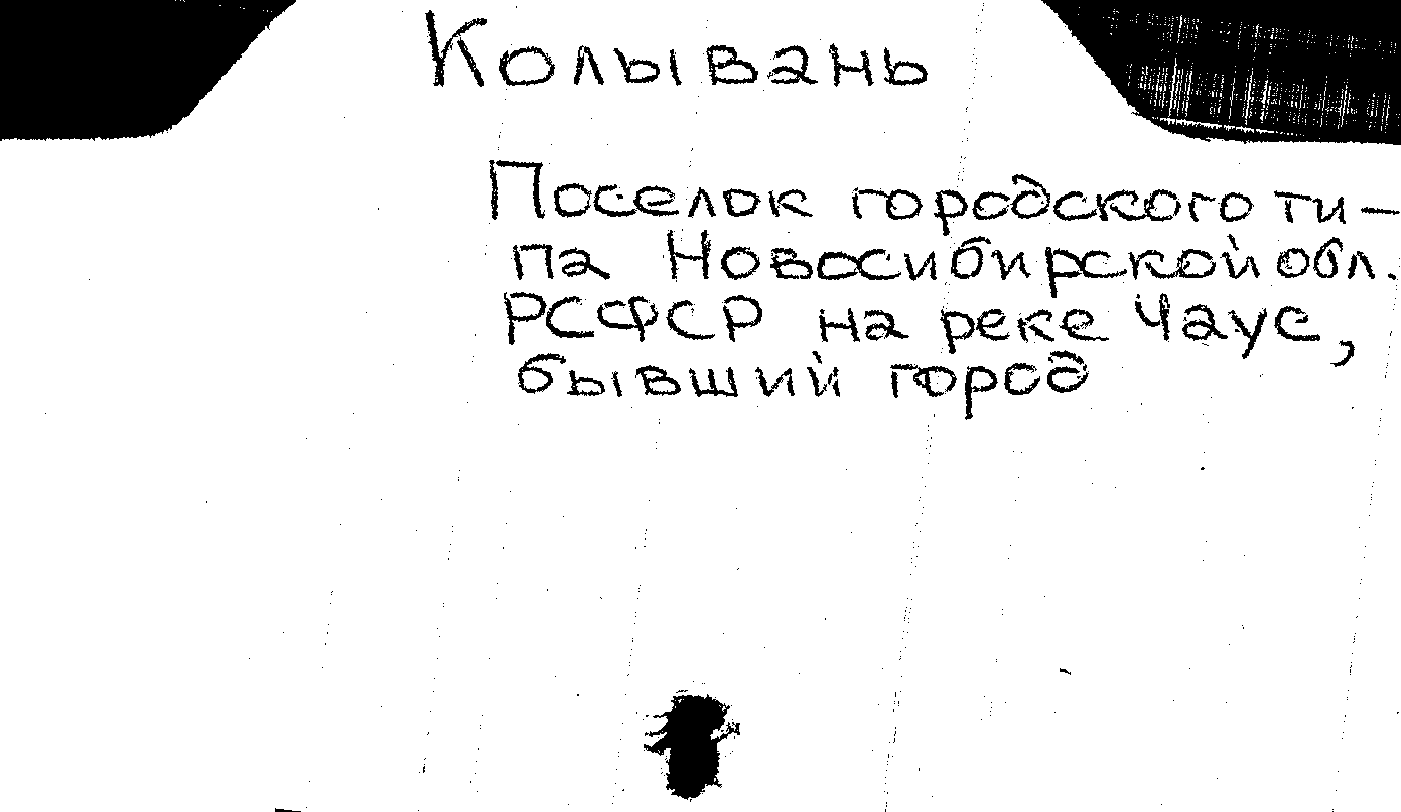 Колывань
Поселок городского ти-
па Новосибирской обл.
РСФСР на реке Чаус,
бывший город